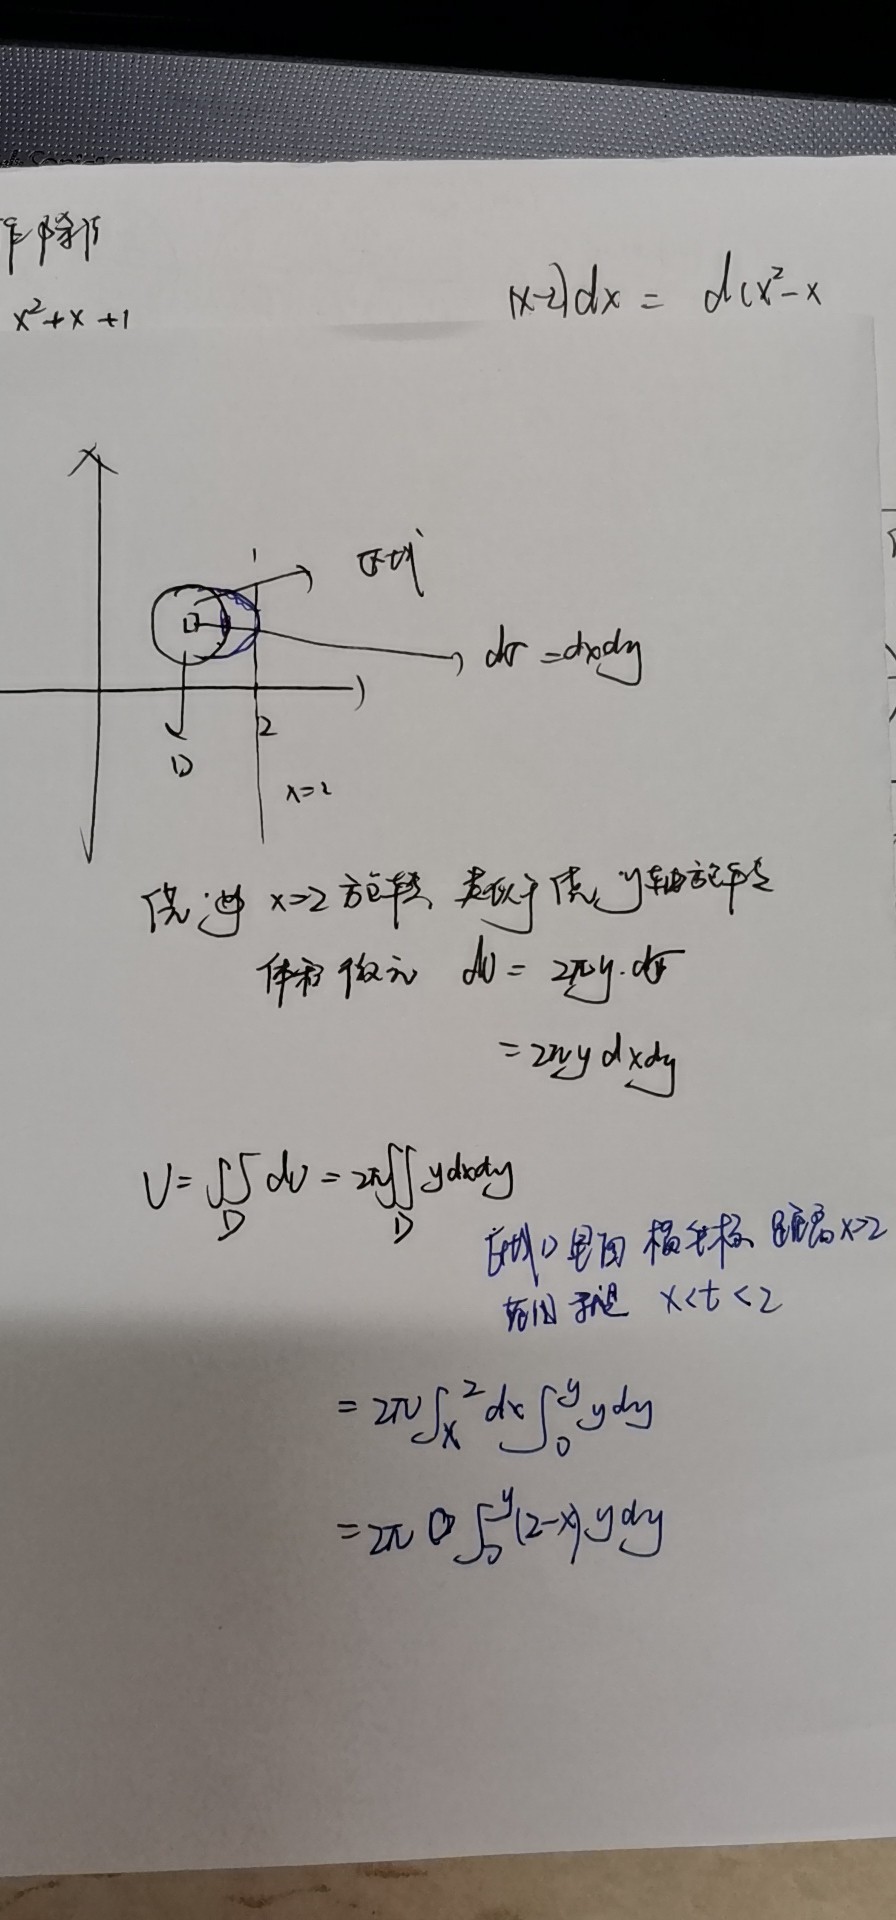 除
x²+x+1
(x-2)dx = d(x²-x
1
区域
dσ = dxdy
2
D
x=2
绕着 x=2 旋转, 类似于绕 y轴旋转
体积微元 dV = 2πy·dσ
= 2πy dxdy
V = ∬ dV = 2π∬ ydxdy
D D
区域D里面 横坐标 距离x=2
范围 x<t<2
= 2π∫ₓ² dx ∫₀ʸ ydy
= 2π ∫₀ʸ (2-x) ydy